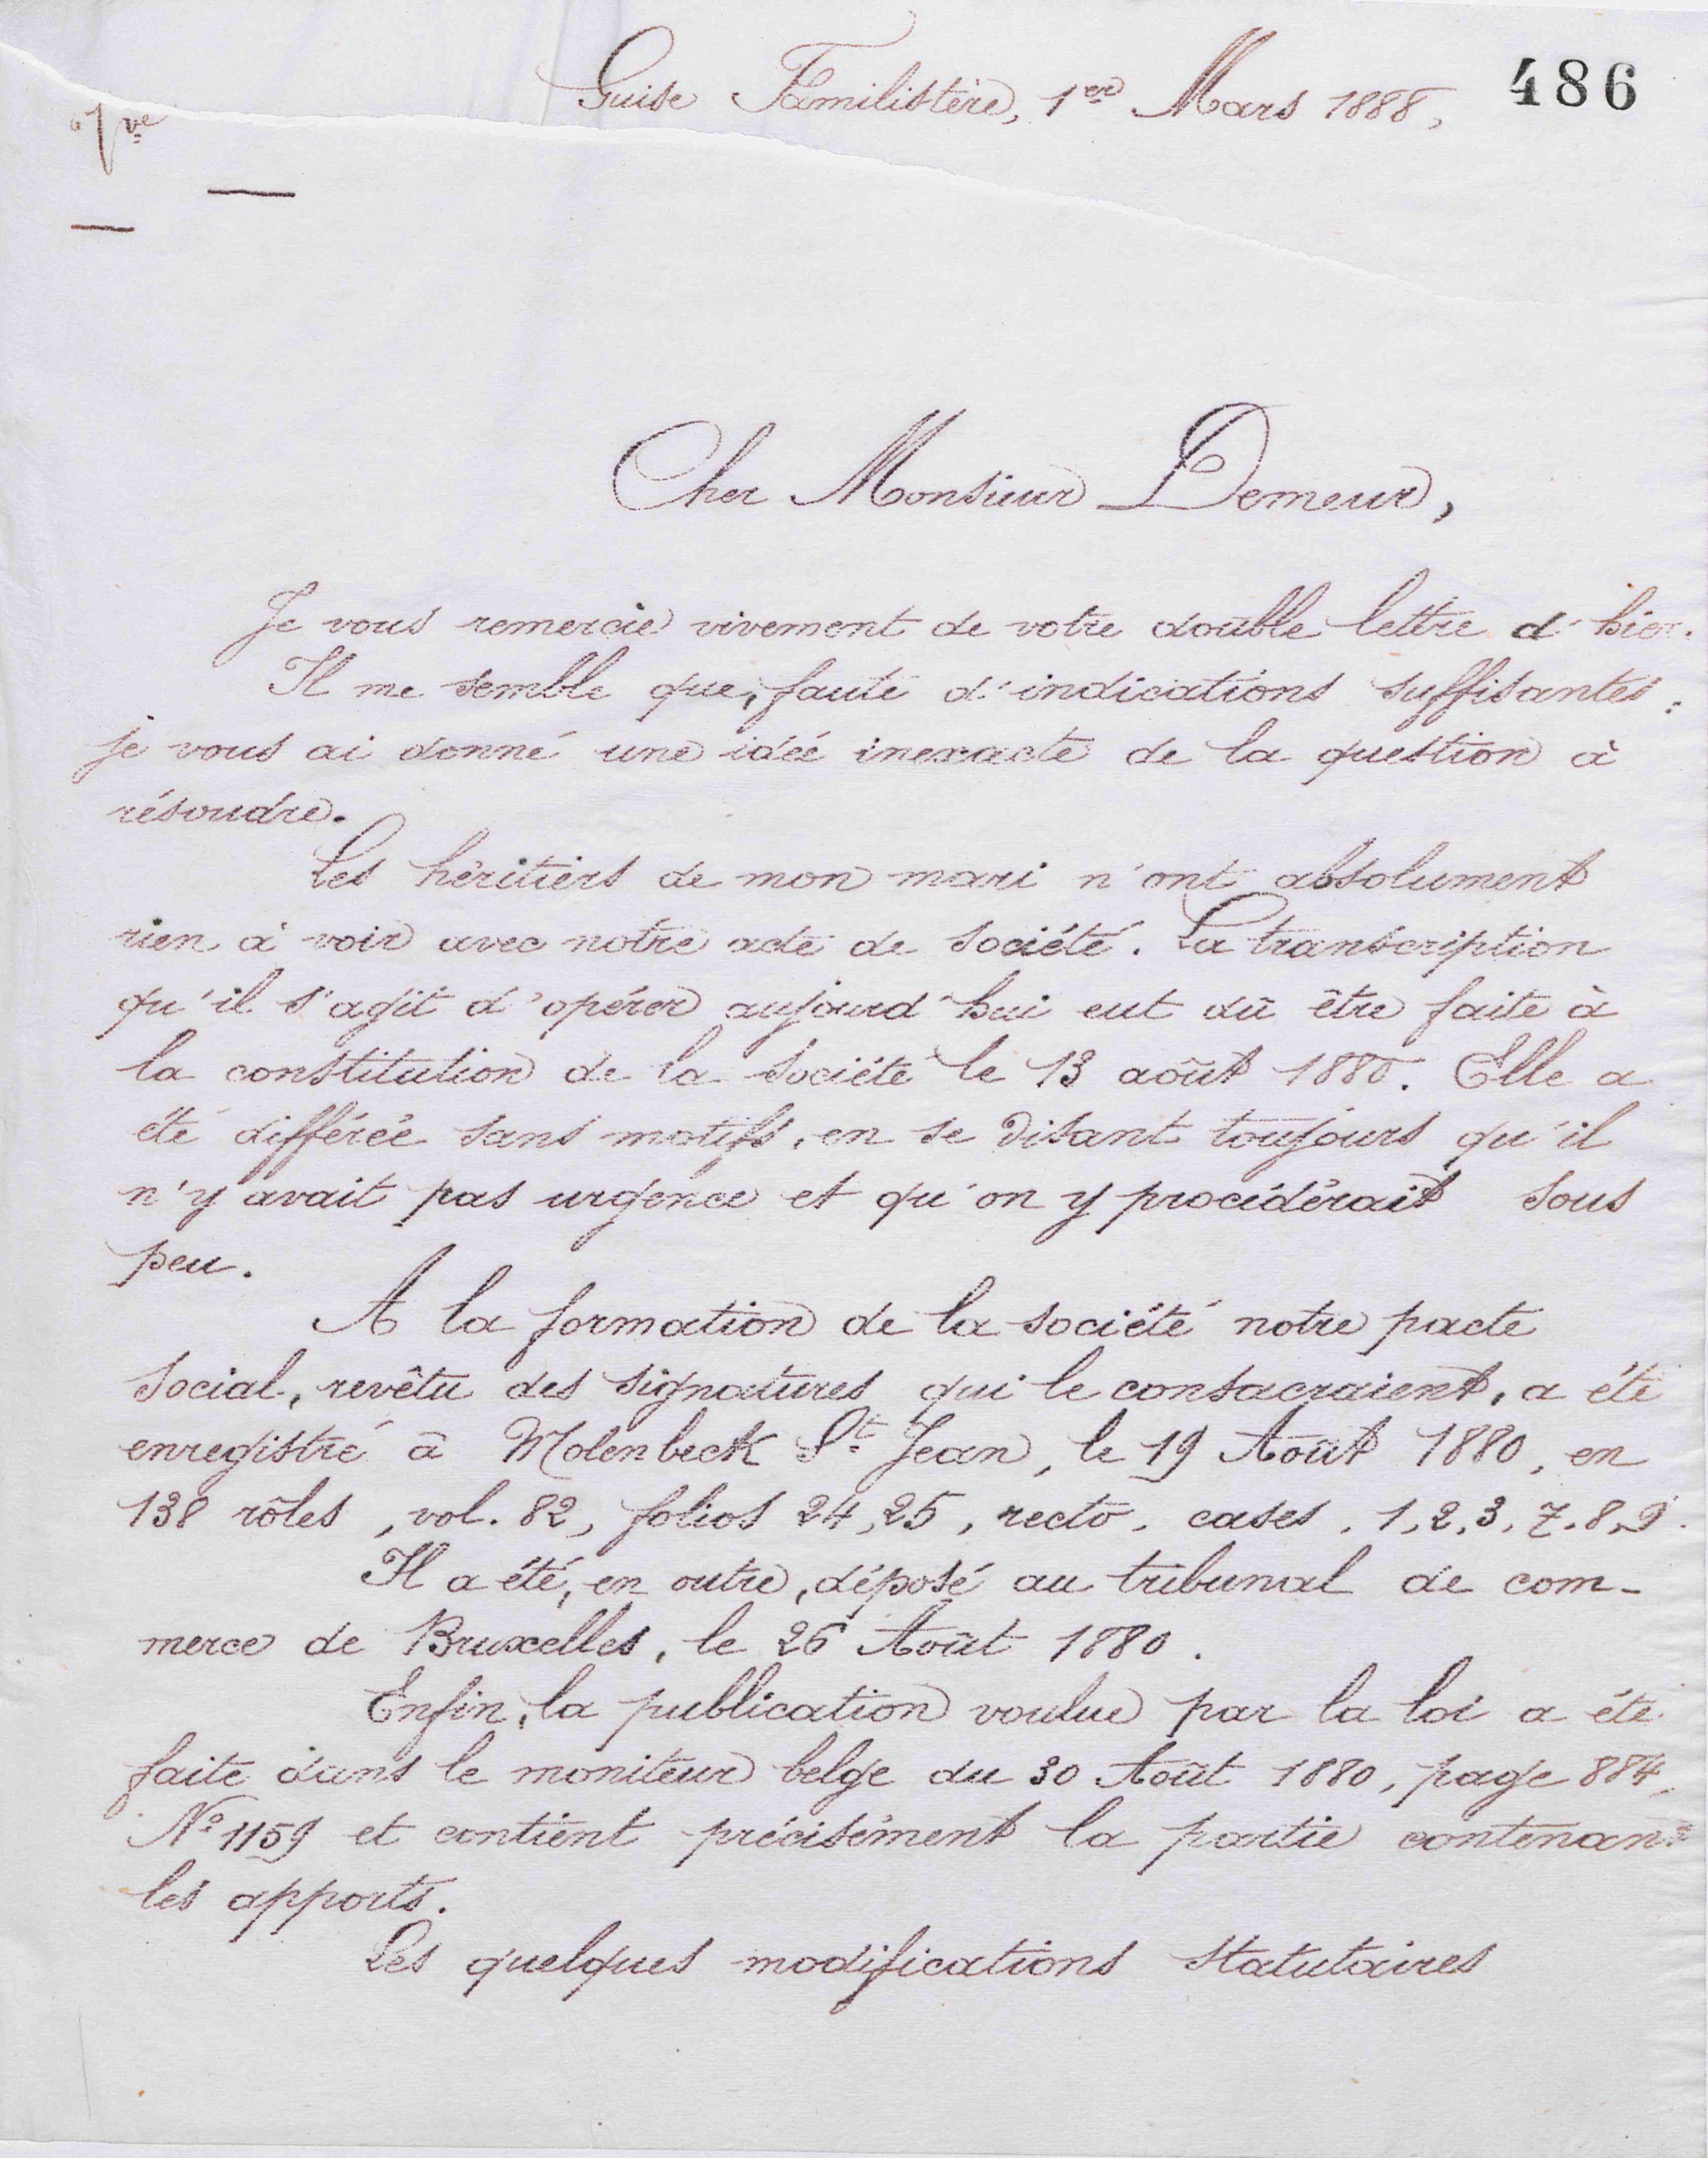 Guise Familistère, 1er Mars 1888,
486
Cher Monsieur Demeur,
Je vous remercie vivement de votre double lettre d'hier.
Il me semble que, faute d'indications suffisantes,
je vous ai donné une idée inexacte de la question à
résoudre.
Les héritiers de mon mari n'ont absolument
rien à voir avec notre acte de société. La transcription
qu'il s'agit d'opérer aujourd'hui eut dû être faite à
la constitution de la Société le 13 août 1880. Elle a
été différée sans motifs, en se disant toujours qu'il
n'y avait pas urgence et qu'on y procéderait sous
peu.
A la formation de la société notre pacte
social, revêtu des signatures qui le consacraient, a été
enregistré à Molenbeck St Jean, le 19 Août 1880, en
138 rôles, vol. 82, folios 24, 25, recto, cases, 1, 2, 3, 7, 8, 9.
Il a été, en outre, déposé au tribunal de com-
merce de Bruxelles, le 26 Août 1880.
Enfin, la publication voulue par la loi a été
faite dans le moniteur belge du 30 Août 1880, page 884,
No 1159 et contient précisément la partie contenant
les apports.
Les quelques modifications statutaires